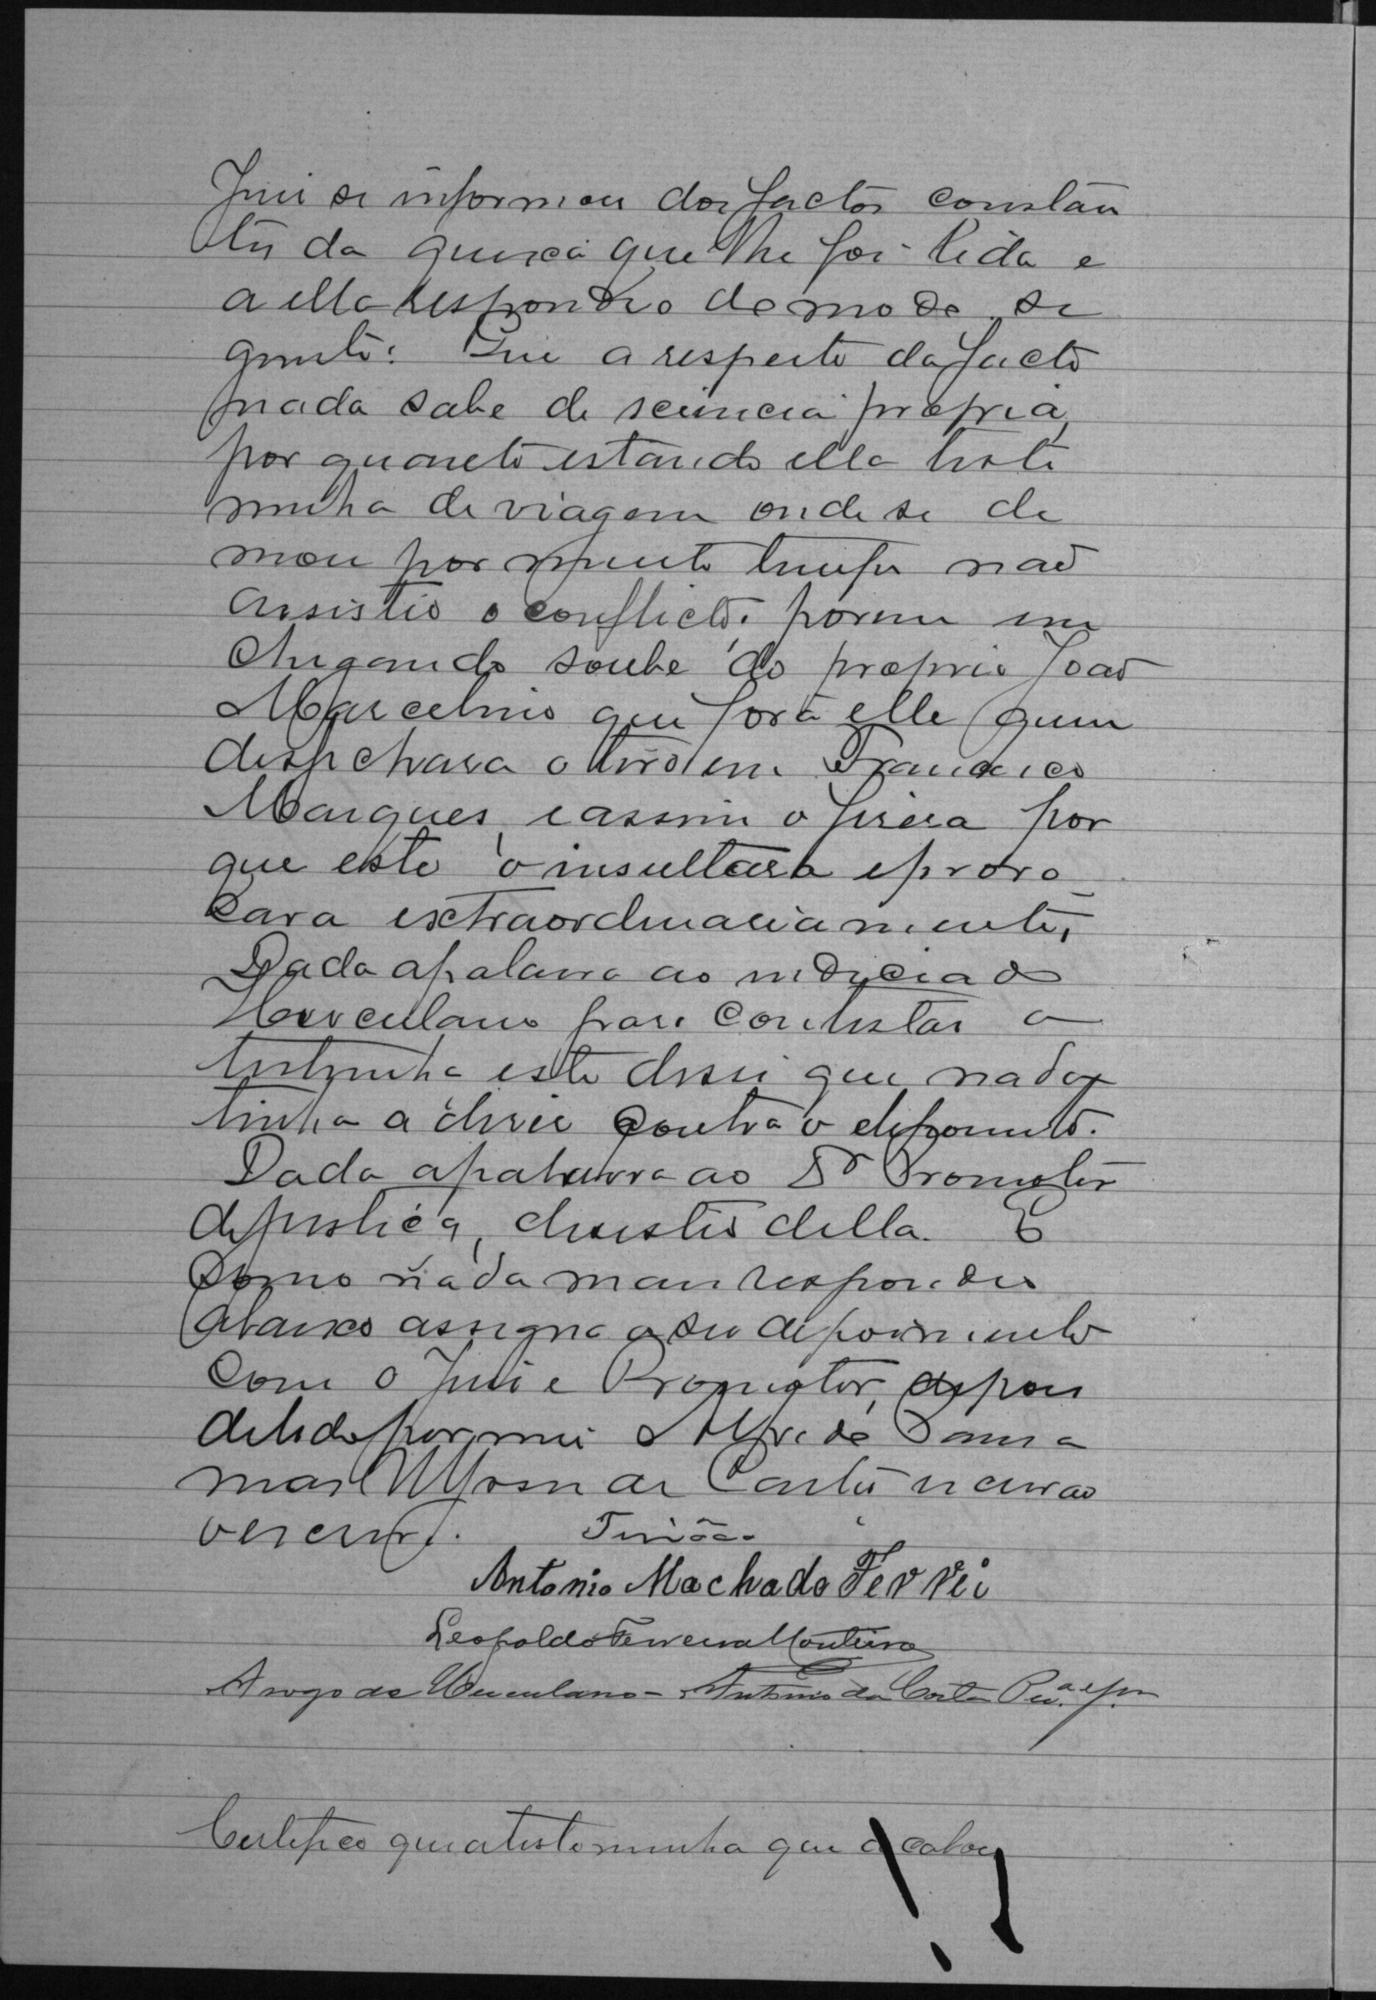 Juiz se informou dos factos constan
tes da queixa que lhe foi lida e
a ella respondeo do modo se
guinte: Que a respeito do facto
nada sabe de sciencia propria,
por quanto estando ella teste
munha de viagem onde se de
morou por muito tempo não
assistio o conflicto, porem em
chegando soube do proprio João
Marcelino que fora elle quem
despchara o tiro em Francisco
Marques, e assim o fizera por
que este o insultara e provo
cara extraordinariamente.
Dada a palavra ao indiciado
Herculano para contestar a
testemunha este disse que nada
tinha a dizer contra o depoimento.
Dada a palavra ao Dr Promotor
de justiça, desistio della. E
como nada mais respondeu
abaixo assigna o seu depoimento
com o Juiz e Promotor, depois
de lido por mim Alfredo
escrivão
escrevi.
Antonio Machado Ferrei
Leopoldo Ferreira Monteiro
A rogo de Herculano - Antonio da Costa
Certifico que a testemunha que acabou